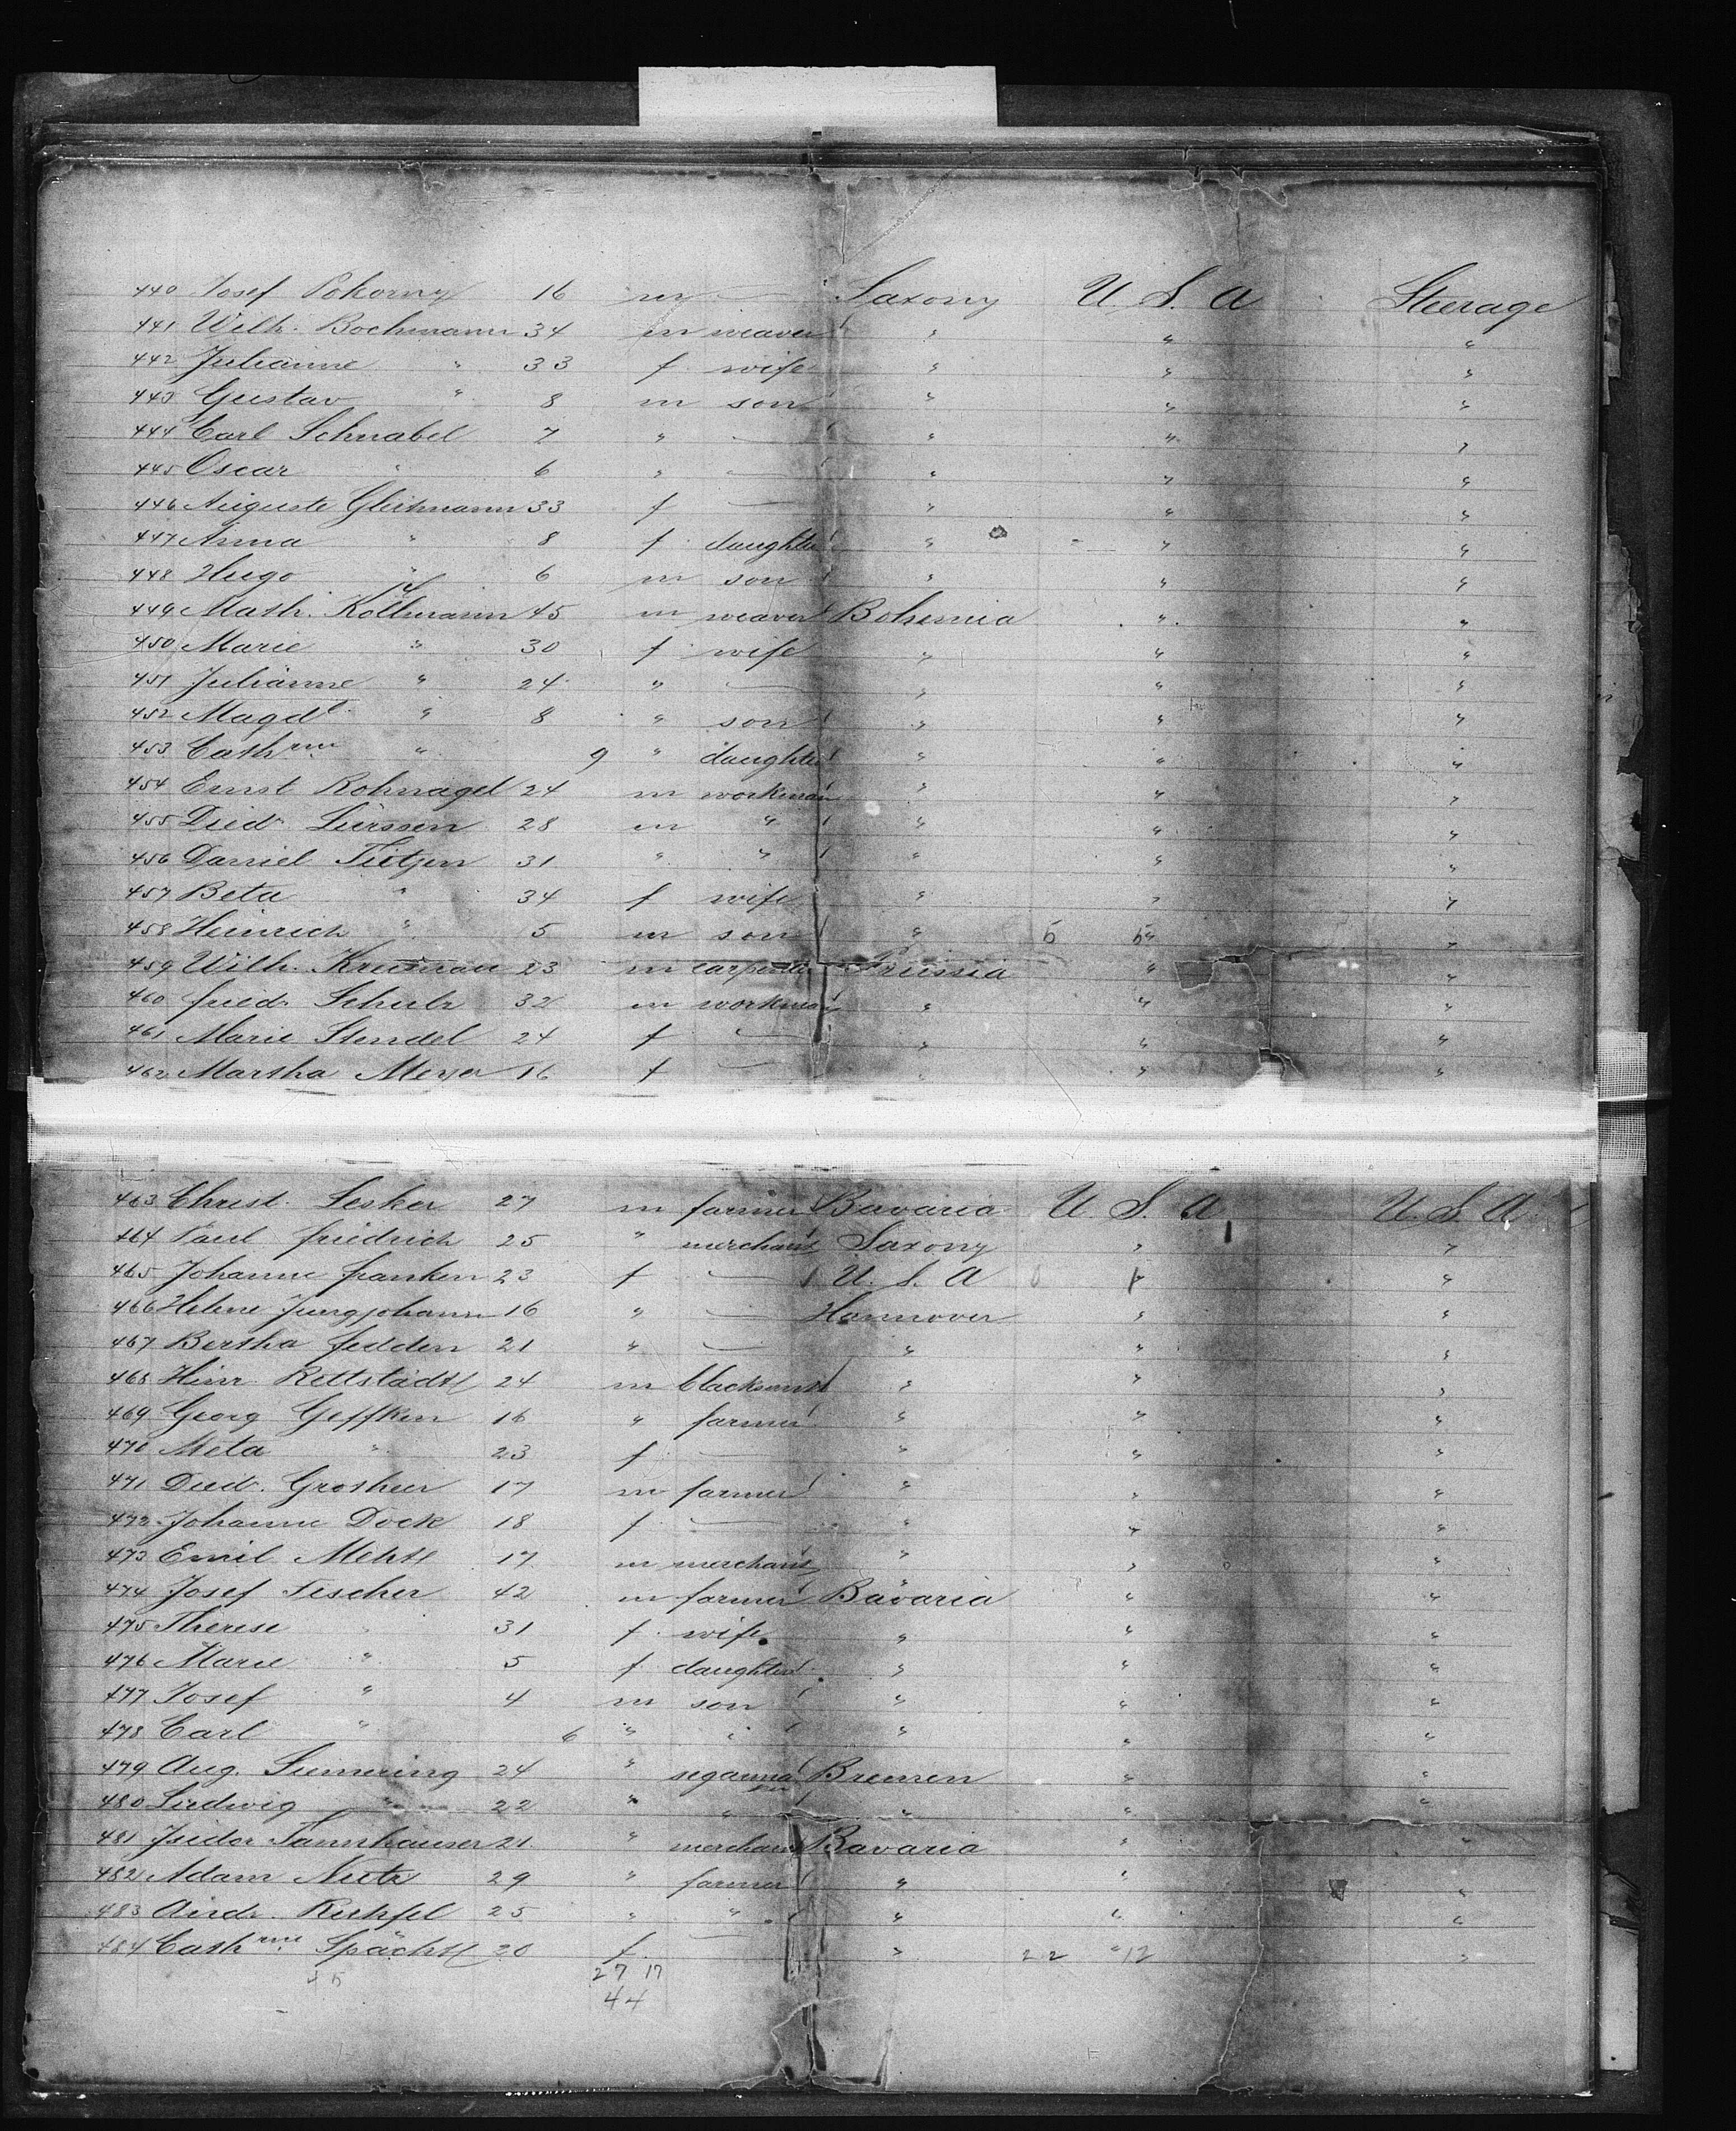 440 Josef Pokorny 16 m — Saxony U. S. A Steerage
441 Wilh. Bochmann 34 m weaver " " "
442 Julianne " 33 f wife " " "
443 Gustav " 8 m son " " "
444 Carl Schnabel 7 " — " " "
445 Oscar " 6 " — " " "
446 Auguste Gleitmann 33 f — " " "
447 Anna " 8 f daughter " " "
448 Hugo " 6 m son " " "
449 Math. Kollmann 45 m weaver Bohemia " "
450 Marie " 30 f wife " " "
451 Julianne " 24 " — " " "
452 Magd " 8 " son " " "
453 Cathrine " 9 " daughter " " "
454 Ernst Rohnagel 24 m workman " " "
455 Died. Lürssen 28 m " " " "
456 Daniel Tietjen 31 " " " " "
457 Beta " 34 f wife " " "
458 Heinrich " 5 m son " 6 "
459 Wilh. 23 m carpenter Prussia " "
460 friedr. Schulz 32 m workman " " "
461 Marie Stendel 24 f — " " "
462 Martha Meyer 16 f — " " "
463 Christ. Lesker 27 m farmer Bavaria U. S. A U. S. A
464 Paul friedrich 25 " merchant Saxony " "
465 Johanne franken 23 f — U. S. A " "
466 Helene Jungjohann 16 " — Hannover " "
467 Bertha fedden 21 " — " " "
468 Hinr. Rettstädt 24 m blacksmith " " "
469 Georg Geffken 16 " farmer " " "
470 Meta " 23 f — " " "
471 Died. Grosheer 17 m farmer " " "
472 Johanne Dock 18 f — " " "
473 Emil 17 m merchant " " "
474 Josef Fischer 42 m farmer Bavaria " "
475 Therese " 31 f wife " " "
476 Marie " 5 f daughter " " "
477 Josef " 4 m son " " "
478 Carl " 6 " " " " "
479 Aug. 24 " Bremen " "
480 Ludwig " 22 " " " " "
481 Isidor Tannhauser 21 " merchant Bavaria " "
482 Adam 29 " farmer " " "
483 Andr. 25 " " " " "
484 Cathrine Spächt 20 f — " 22 12 "
45 27 17
44